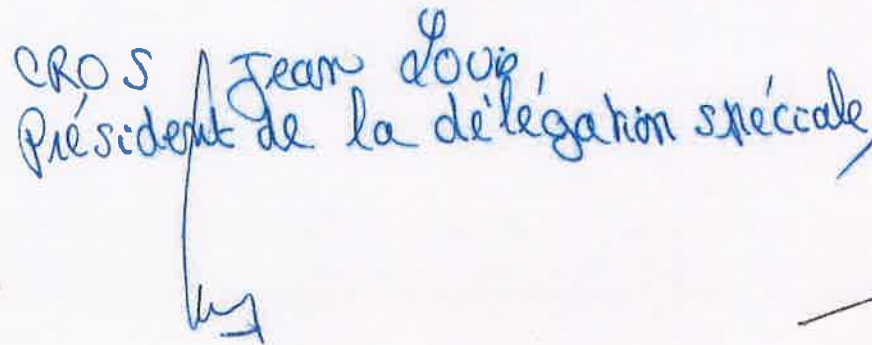 CROS Jean Louis
Président de la délégation spéciale,